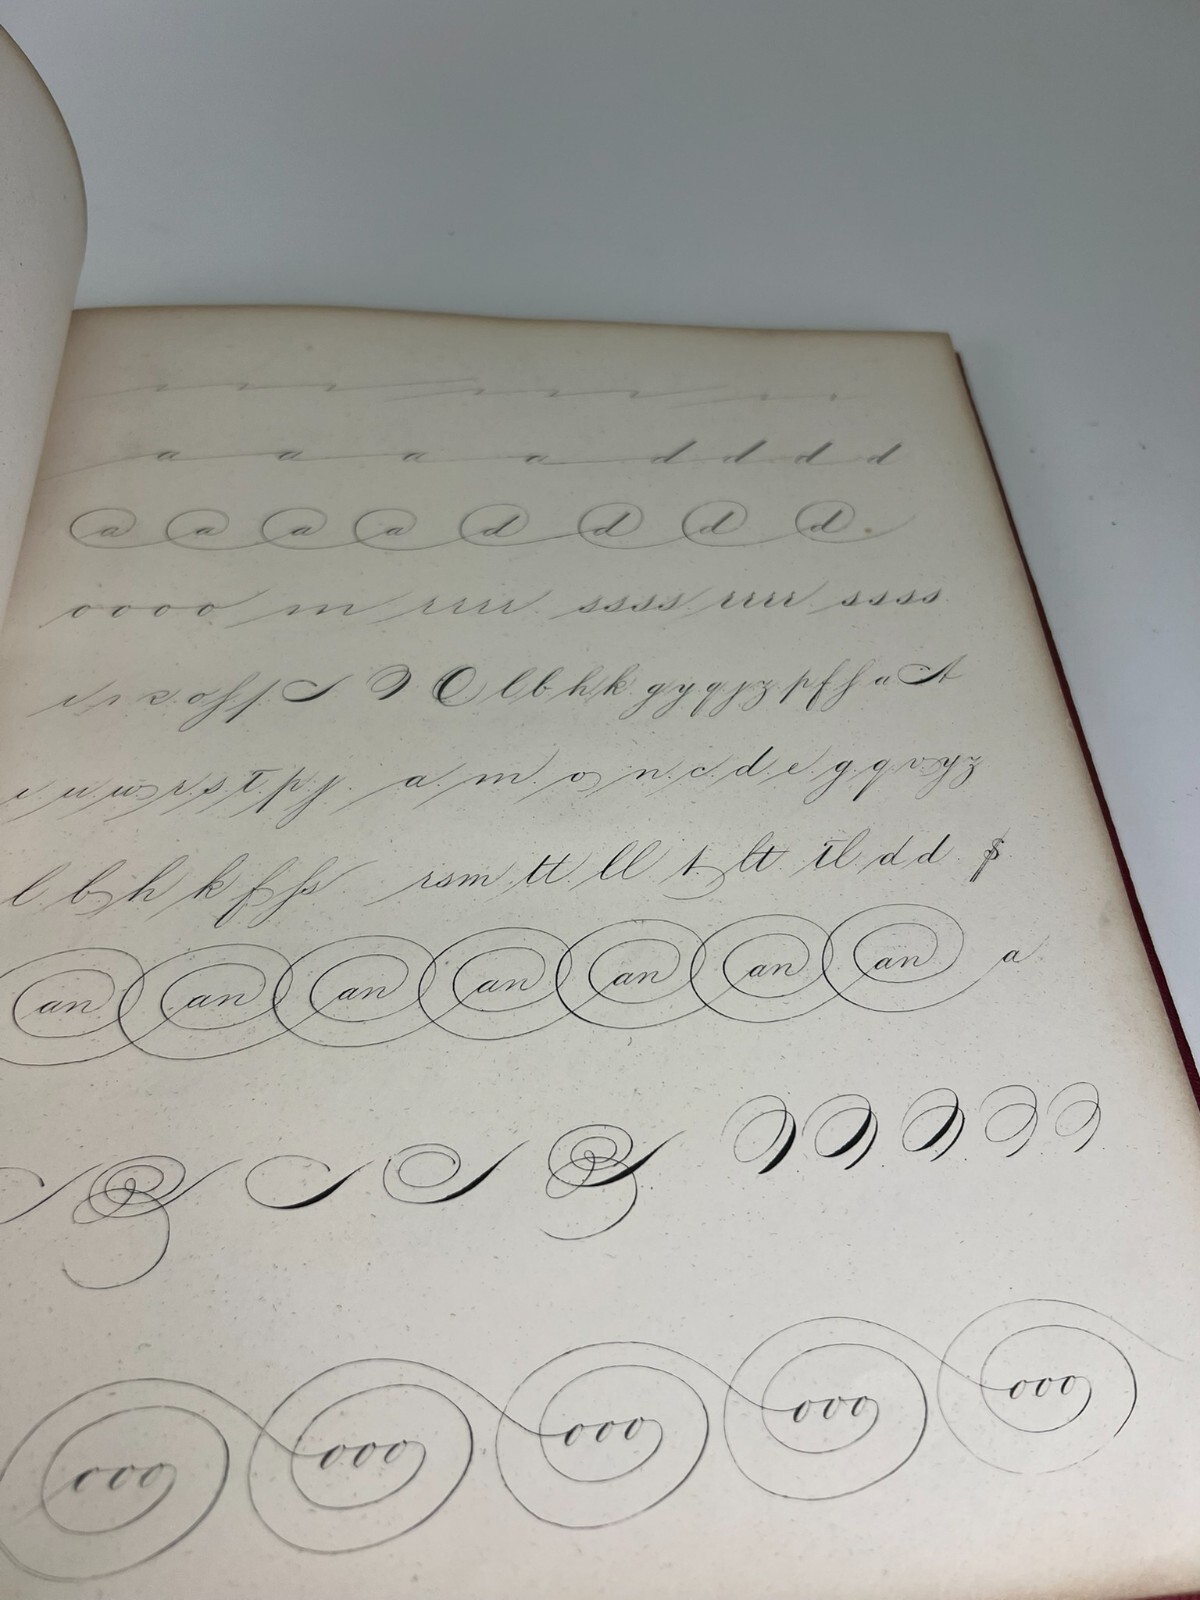 a a a a d d d d
a a a a d d d d
oooo m rrrr ssss rrrr ssss
l b h k g y q j z p f h a A
i u w r s t p j a m o n c d e g q v y z
l b h k f fs rsm tt ll t lt tl d d $
an an an an an an an a
ooo ooo ooo ooo ooo